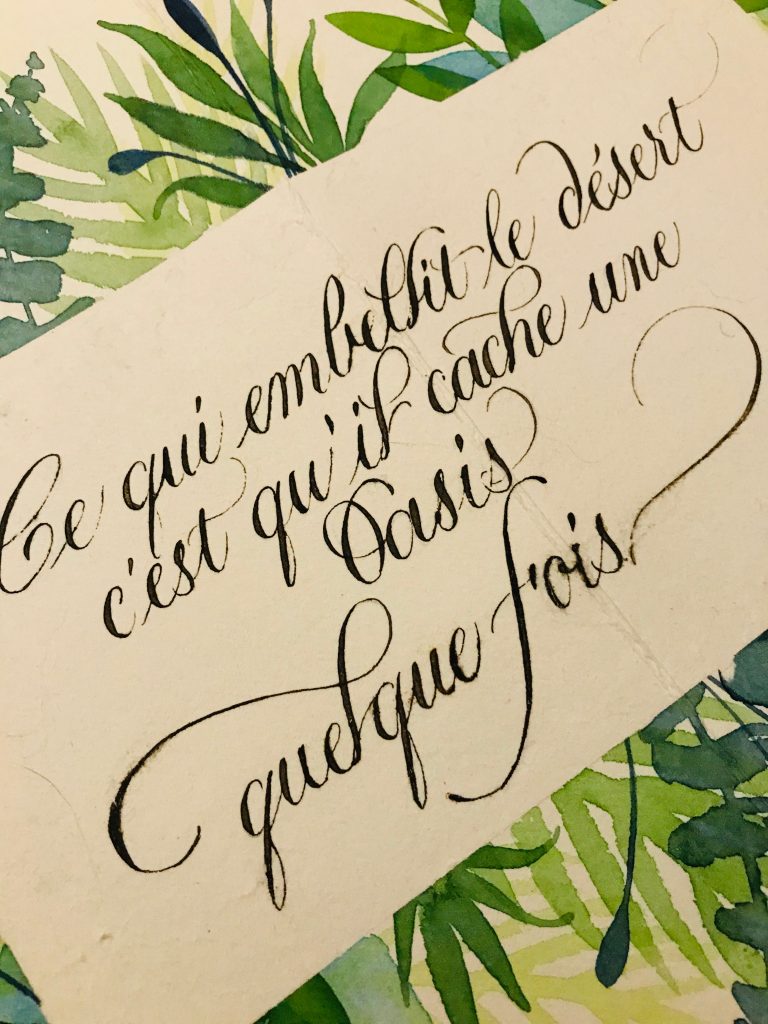 Ce qui embellit le désert
c'est qu'il cache une
Oasis
quelque fois.